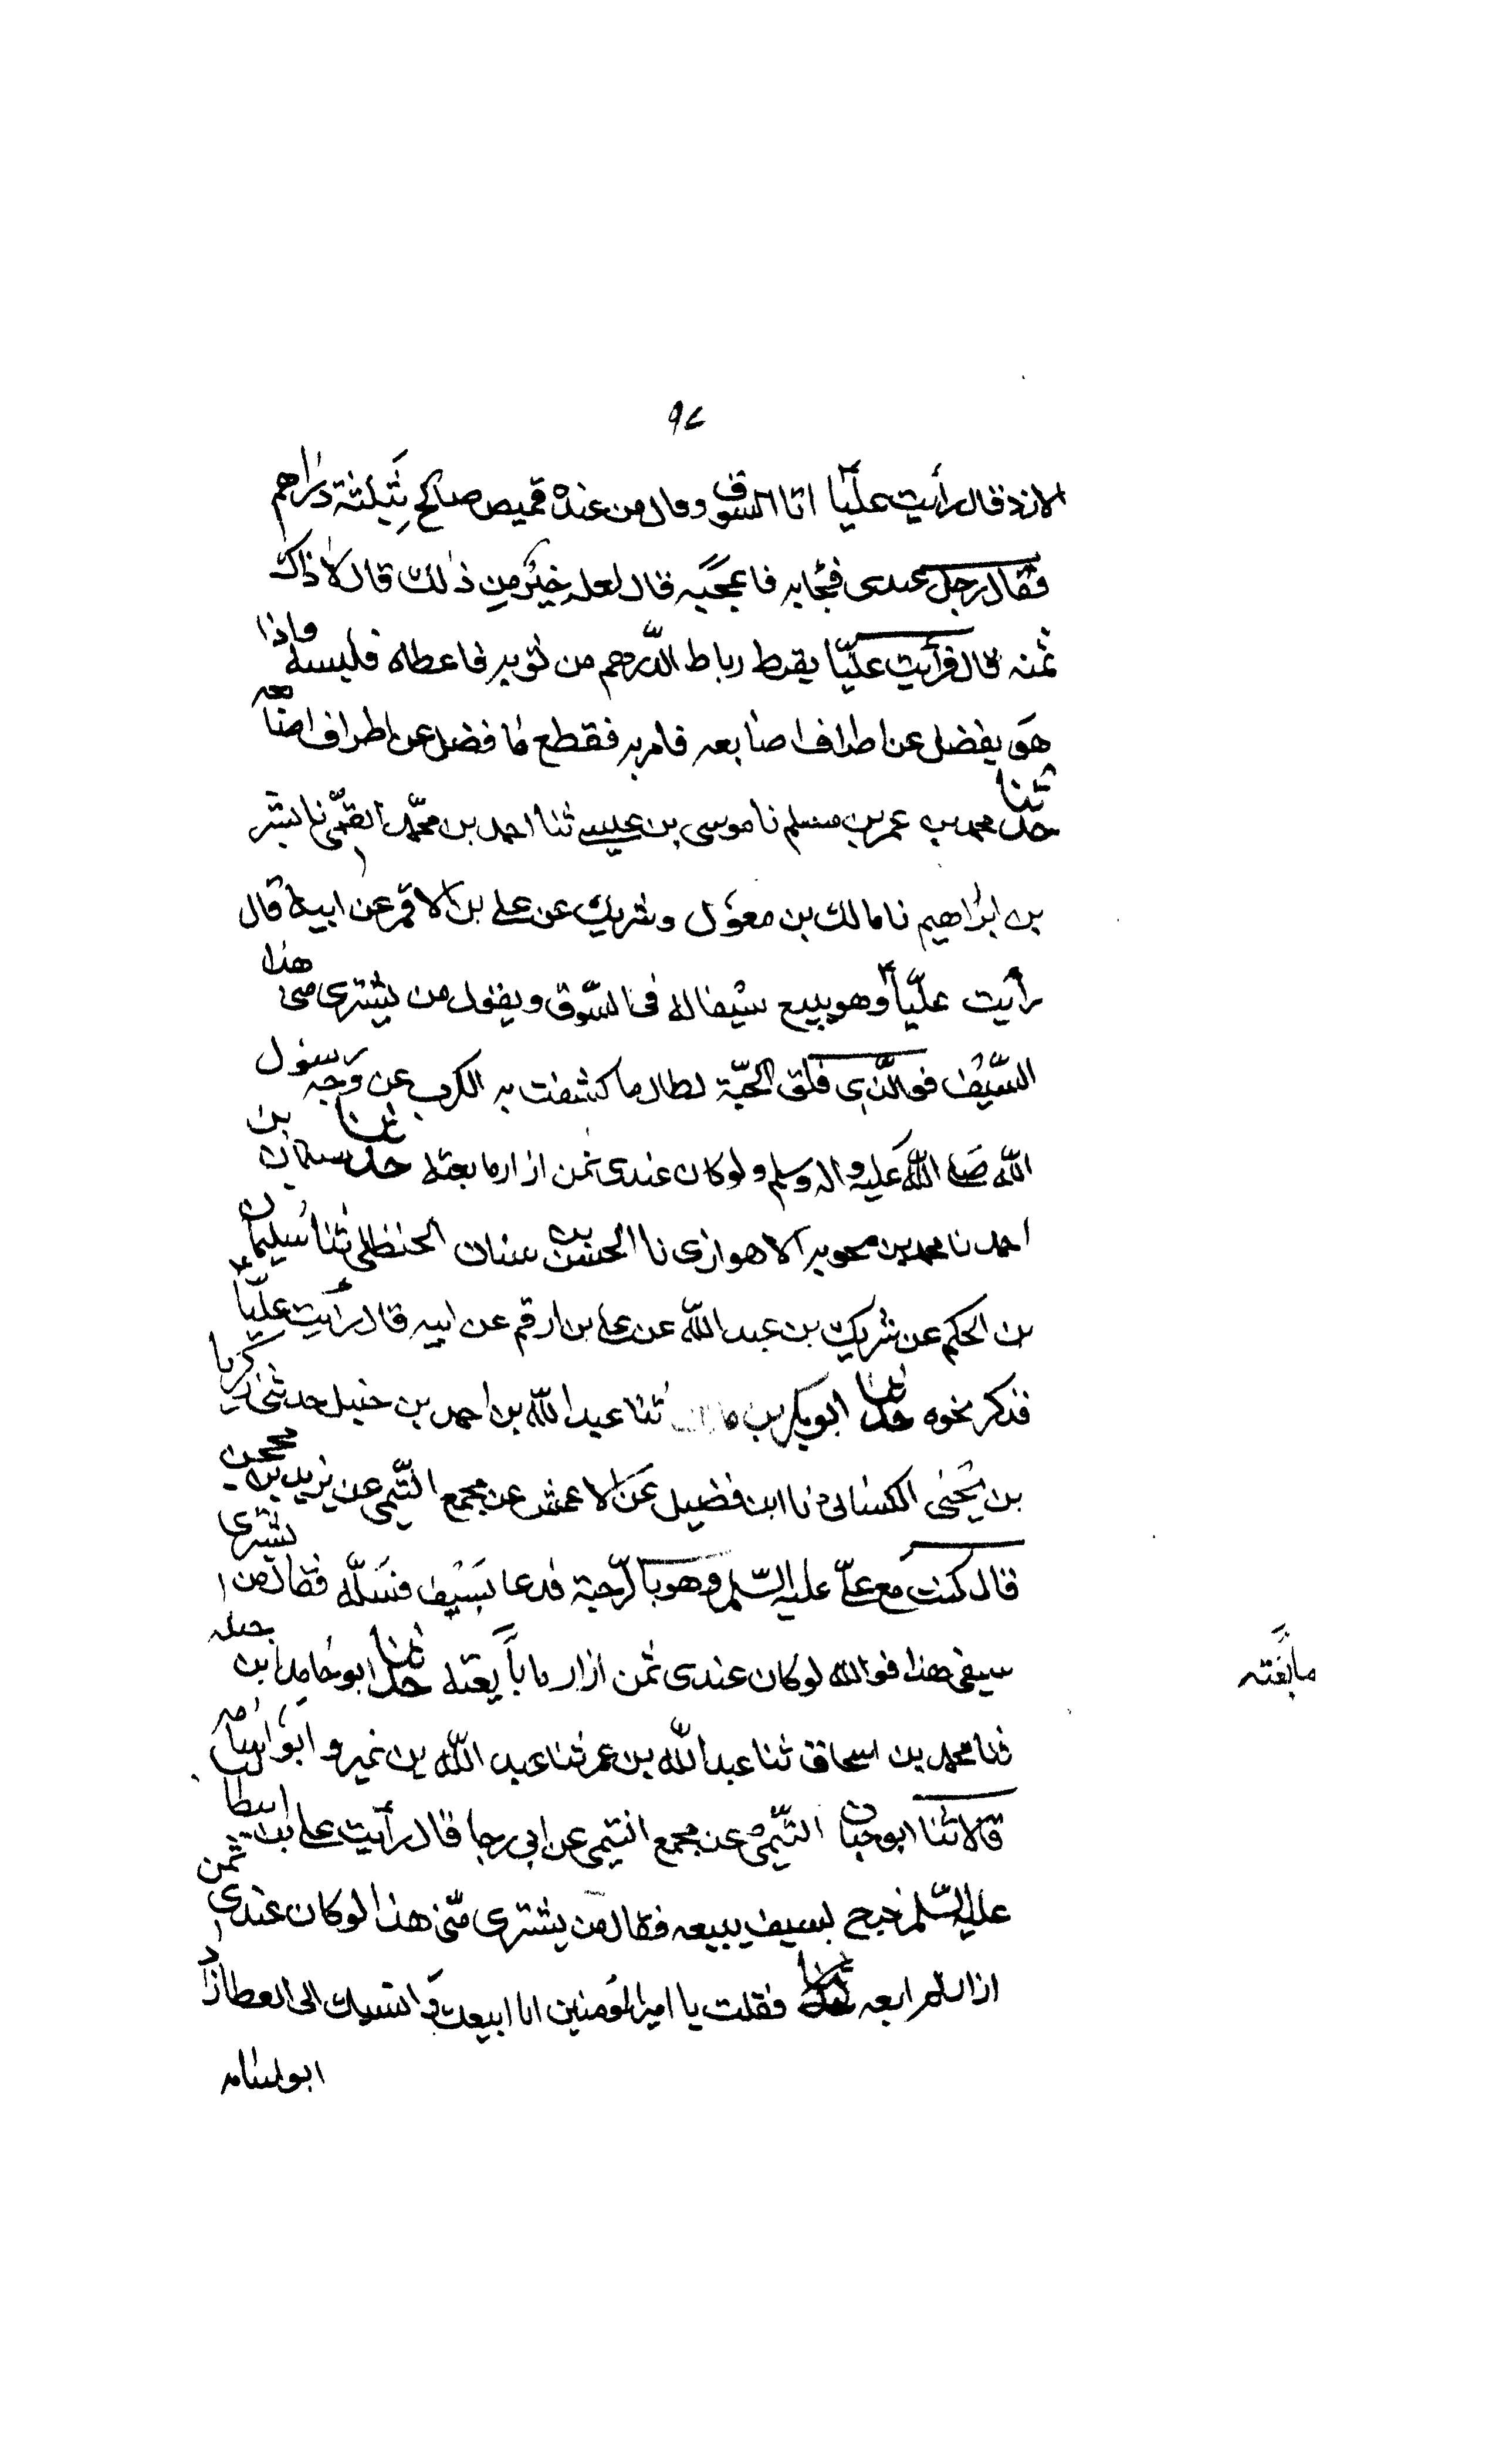 ٩٧
الازد قال رأيت عليّا اتا السوق وقال من عنده قميص صالح بثلثة دراهم
فقال رجل عندى فجابه فاعجبه قال لعله خير من ذلك قال لا ذاك
ثمنه قال فرأيت عليّا يقرط رباط الدّرهم من ثوبه فاعطاه فلبسه فاذا
هو يفضل عن اطراف اصابعه فامر به فقطع ما فضل عن اطراف اصابعه
حدثنا محمد بن عمر بن مسلم نا موسى بن عيسى ثنا احمد بن محمّد القمّى نا بشر
بن ابراهيم نا مالك بن مغول وشريك عن على بن الاقمر عن ابيه قال
رأيت عليّا وهو يبيع سيفا له فى السّوق ويقول من يشترى منى هذا
السّيف فوالّذى فلق الحبّة لطال ما كشفت به الكرب عن وجه رسول
الله صلى الله عليه واله وسلم ولو كان عندى ثمن ازار ما بعته حدثنا سليمان بن
احمد نا محمد بن محويه الاهوازى نا الحسن بن سنان الحنظلى ثنا سليمان
بن الحكم عن شريك بن عبد الله عن على بن ارقم عن ابيه قال رأيت عليّا
فذكر نحوه حدثنا ابو بكر بن ثنا عبد الله بن احمد بن حنبل حدثنى زكريا
بن يحيى الكسائى نا ابن فضيل عن الاعمش عن مجمع التّيمى عن يزيد بن محجن
قال كنت مع علىّ عليه السّلم وهو بالرّحبة فدعا بسيف فسلّه فقال من يشترى
سيفى هذا فوالله لو كان عندى ثمن ازار ما بايعته حدثنا ابو حامد ابن جبله
مابعته
ثنا محمد بن اسحاق ثنا عبد الله بن عمر ثنا عبد الله بن نمير و ابو اسامه
قالا ثنا ابو حيان التّيمى عن مجمع التيمى عن ابى رجا قال رأيت على بن ابيطالب
عليه السّلم خرج بسيف يبيعه فقال من يشترى منّى هذا لو كان عندى ثمن
ازار لم ابعه فقلت يا امير المؤمنين انا ابيعك و انسيك الى العطا زاد
ابو اسامه